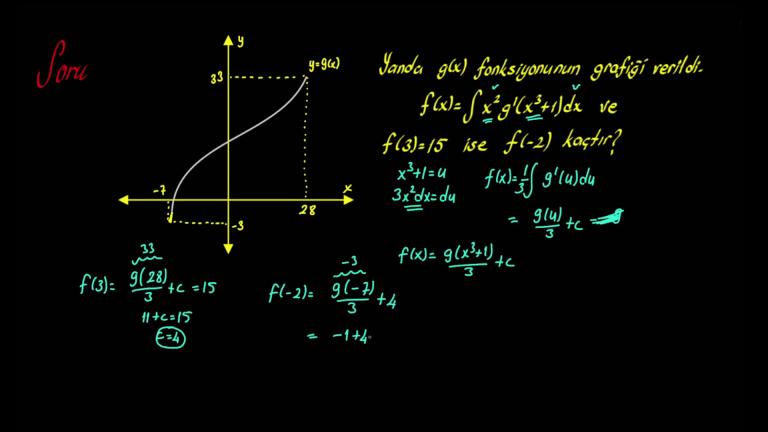 Soru
y
y=g(x)
33
-7
x
28
-3
Yanda g(x) fonksiyonunun grafiği verildi.
f(x)=∫x²g'(x³+1)dx ve
f(3)=15 ise f(-2) kaçtır?
x³+1=u
3x²dx=du
f(x)=1/3∫g'(u)du
= g(u)/3+c =
f(x)= g(x³+1)/3+c
33
f(3)= g(28)/3+c=15
11+c=15
c=4
-3
f(-2)= g(-7)/3+4
= -1+4